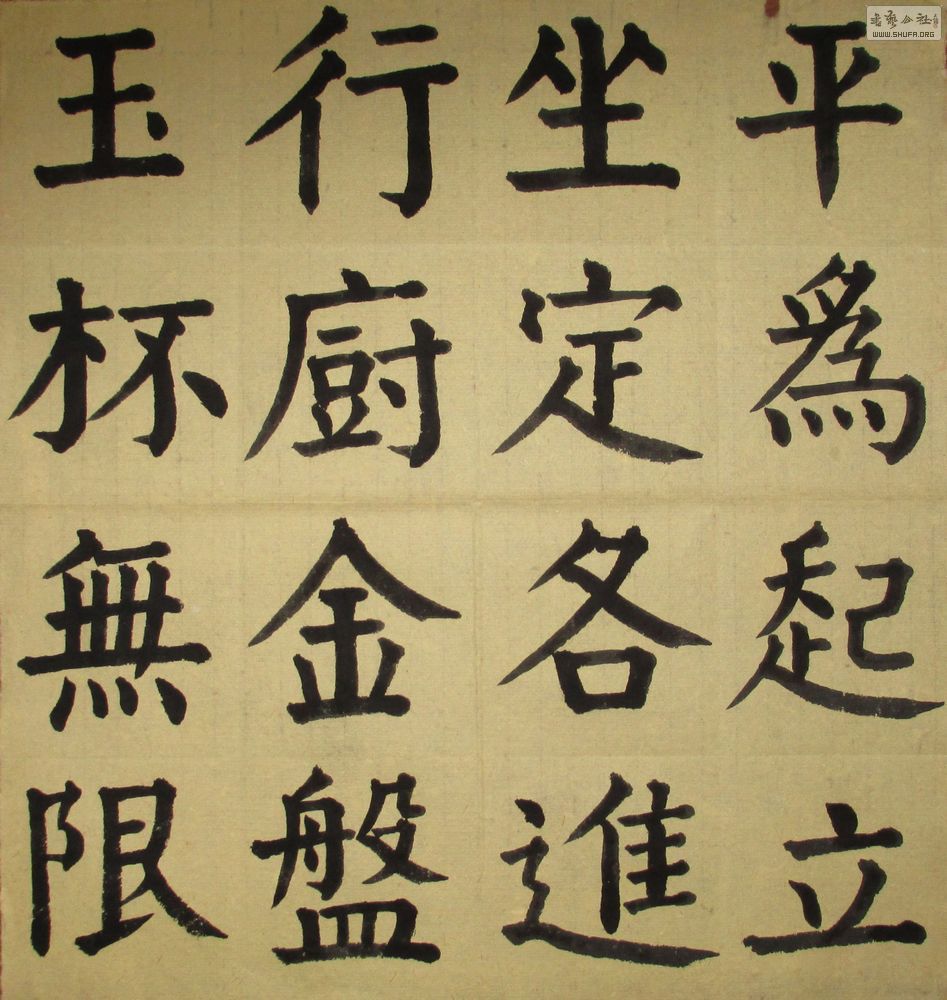 平爲起立
坐定各進
行廚金盤
玉杯無限
WWW.SHUFA.ORG